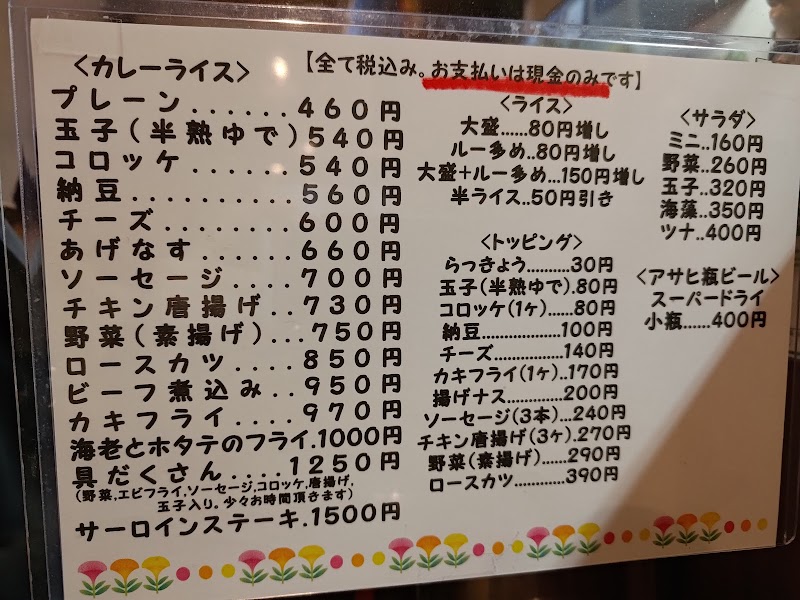 【全て税込み。お支払いは現金のみです】
〈カレーライス〉
プレーン......460円
玉子(半熟ゆで)540円
コロッケ.......540円
納豆..........560円
チーズ........600円
あげなす......660円
ソーセージ....700円
チキン唐揚げ..730円
野菜(素揚げ)...750円
ロースカツ....850円
ビーフ煮込み..950円
カキフライ....970円
海老とホタテのフライ.1000円
具だくさん....1250円
(野菜,エビフライ,ソーセージ,コロッケ,唐揚げ,
玉子入り。少々お時間頂きます)
サーロインステーキ.1500円
〈ライス〉
大盛......80円増し
ルー多め..80円増し
大盛+ルー多め...150円増し
半ライス..50円引き
〈トッピング〉
らっきょう..........30円
玉子(半熟ゆで).80円
コロッケ(1ヶ).....80円
納豆................100円
チーズ..............140円
カキフライ(1ヶ).170円
揚げナス..........200円
ソーセージ(3本)...240円
チキン唐揚げ(3ヶ).270円
野菜(素揚げ)......290円
ロースカツ...........390円
〈サラダ〉
ミニ..160円
野菜..260円
玉子..320円
海藻..350円
ツナ..400円
〈アサヒ瓶ビール〉
スーパードライ
小瓶......400円